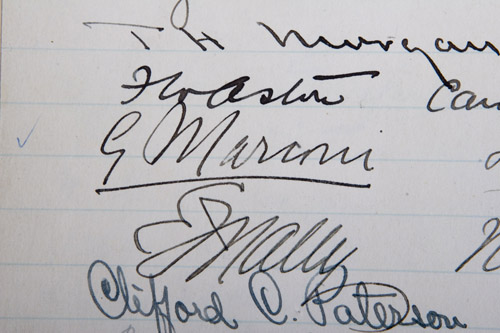 T H Morgan
F W Aston Cam
G Marconi
Clifford C. Paterson